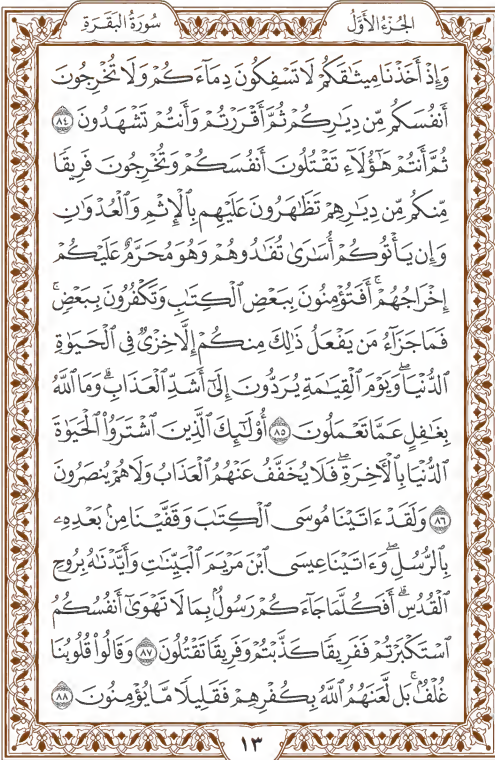 الجُزْءُ الأَوَّلُ سُورَةُ البَقَرَةِ
وَإِذْ أَخَذْنَا مِيثَٰقَكُمْ لَا تَسْفِكُونَ دِمَآءَكُمْ وَلَا تُخْرِجُونَ
أَنفُسَكُم مِّن دِيَٰرِكُمْ ثُمَّ أَقْرَرْتُمْ وَأَنتُمْ تَشْهَدُونَ ٨٤
ثُمَّ أَنتُمْ هَٰٓؤُلَآءِ تَقْتُلُونَ أَنفُسَكُمْ وَتُخْرِجُونَ فَرِيقًا
مِّنكُم مِّن دِيَٰرِهِمْ تَظَٰهَرُونَ عَلَيْهِم بِٱلْإِثْمِ وَٱلْعُدْوَٰنِ
وَإِن يَأْتُوكُمْ أُسَٰرَىٰ تُفَٰدُوهُمْ وَهُوَ مُحَرَّمٌ عَلَيْكُمْ
إِخْرَاجُهُمْ ۚ أَفَتُؤْمِنُونَ بِبَعْضِ ٱلْكِتَٰبِ وَتَكْفُرُونَ بِبَعْضٍ ۚ
فَمَا جَزَآءُ مَن يَفْعَلُ ذَٰلِكَ مِنكُمْ إِلَّا خِزْىٌ فِى ٱلْحَيَوٰةِ
ٱلدُّنْيَا ۖ وَيَوْمَ ٱلْقِيَٰمَةِ يُرَدُّونَ إِلَىٰٓ أَشَدِّ ٱلْعَذَابِ ۗ وَمَا ٱللَّهُ
بِغَٰفِلٍ عَمَّا تَعْمَلُونَ ٨٥ أُو۟لَٰٓئِكَ ٱلَّذِينَ ٱشْتَرَوُا۟ ٱلْحَيَوٰةَ
ٱلدُّنْيَا بِٱلْءَاخِرَةِ ۖ فَلَا يُخَفَّفُ عَنْهُمُ ٱلْعَذَابُ وَلَا هُمْ يُنصَرُونَ
٨٦ وَلَقَدْ ءَاتَيْنَا مُوسَى ٱلْكِتَٰبَ وَقَفَّيْنَا مِنۢ بَعْدِهِۦ
بِٱلرُّسُلِ ۖ وَءَاتَيْنَا عِيسَى ٱبْنَ مَرْيَمَ ٱلْبَيِّنَٰتِ وَأَيَّدْنَٰهُ بِرُوحِ
ٱلْقُدُسِ ۗ أَفَكُلَّمَا جَآءَكُمْ رَسُولٌۢ بِمَا لَا تَهْوَىٰٓ أَنفُسُكُمُ
ٱسْتَكْبَرْتُمْ فَفَرِيقًا كَذَّبْتُمْ وَفَرِيقًا تَقْتُلُونَ ٨٧ وَقَالُوا۟ قُلُوبُنَا
غُلْفٌۢ ۚ بَل لَّعَنَهُمُ ٱللَّهُ بِكُفْرِهِمْ فَقَلِيلًا مَّا يُؤْمِنُونَ ٨٨
١٣